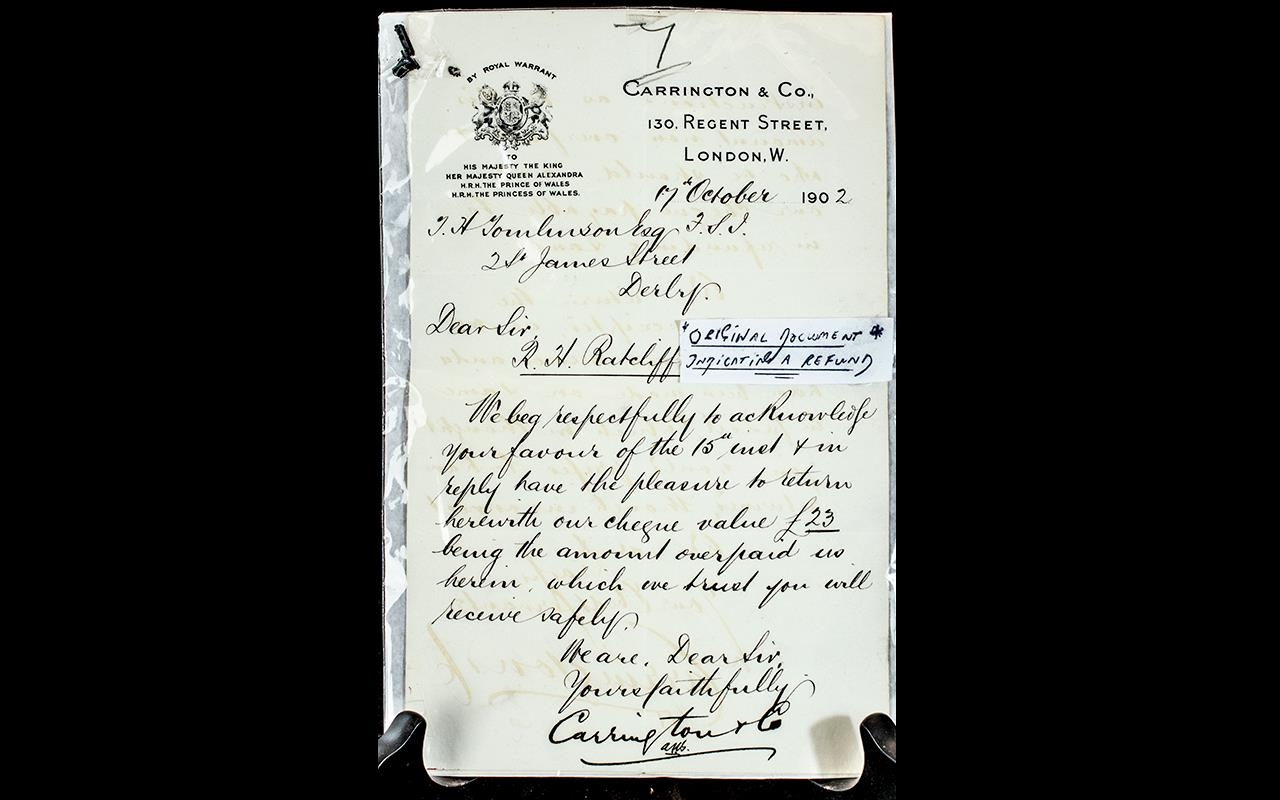 BY ROYAL WARRANT
TO
HIS MAJESTY THE KING
HER MAJESTY QUEEN ALEXANDRA
H.R.H. THE PRINCE OF WALES
H.R.H. THE PRINCESS OF WALES.
CARRINGTON & CO.,
130. REGENT STREET,
LONDON, W.
17th October 1902
T. H. Tomlinson Esq F.S.I.
2 St James Street
Derby.
Dear Sir,
R. H. Ratcliff
"ORIGINAL DOCUMENT"
INDICATING A REFUND
We beg respectfully to acknowledge
your favour of the 15th inst & in
reply have the pleasure to return
herewith our cheque value £23
being the amount overpaid us
herein, which we trust you will
receive safely.
We are, Dear Sir,
Yours faithfully
Carrington & Co